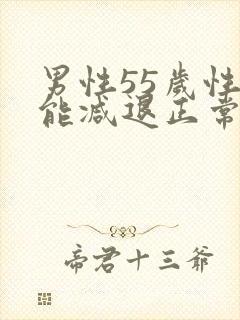 男性55歲性
能減退正常
帝君十三爺